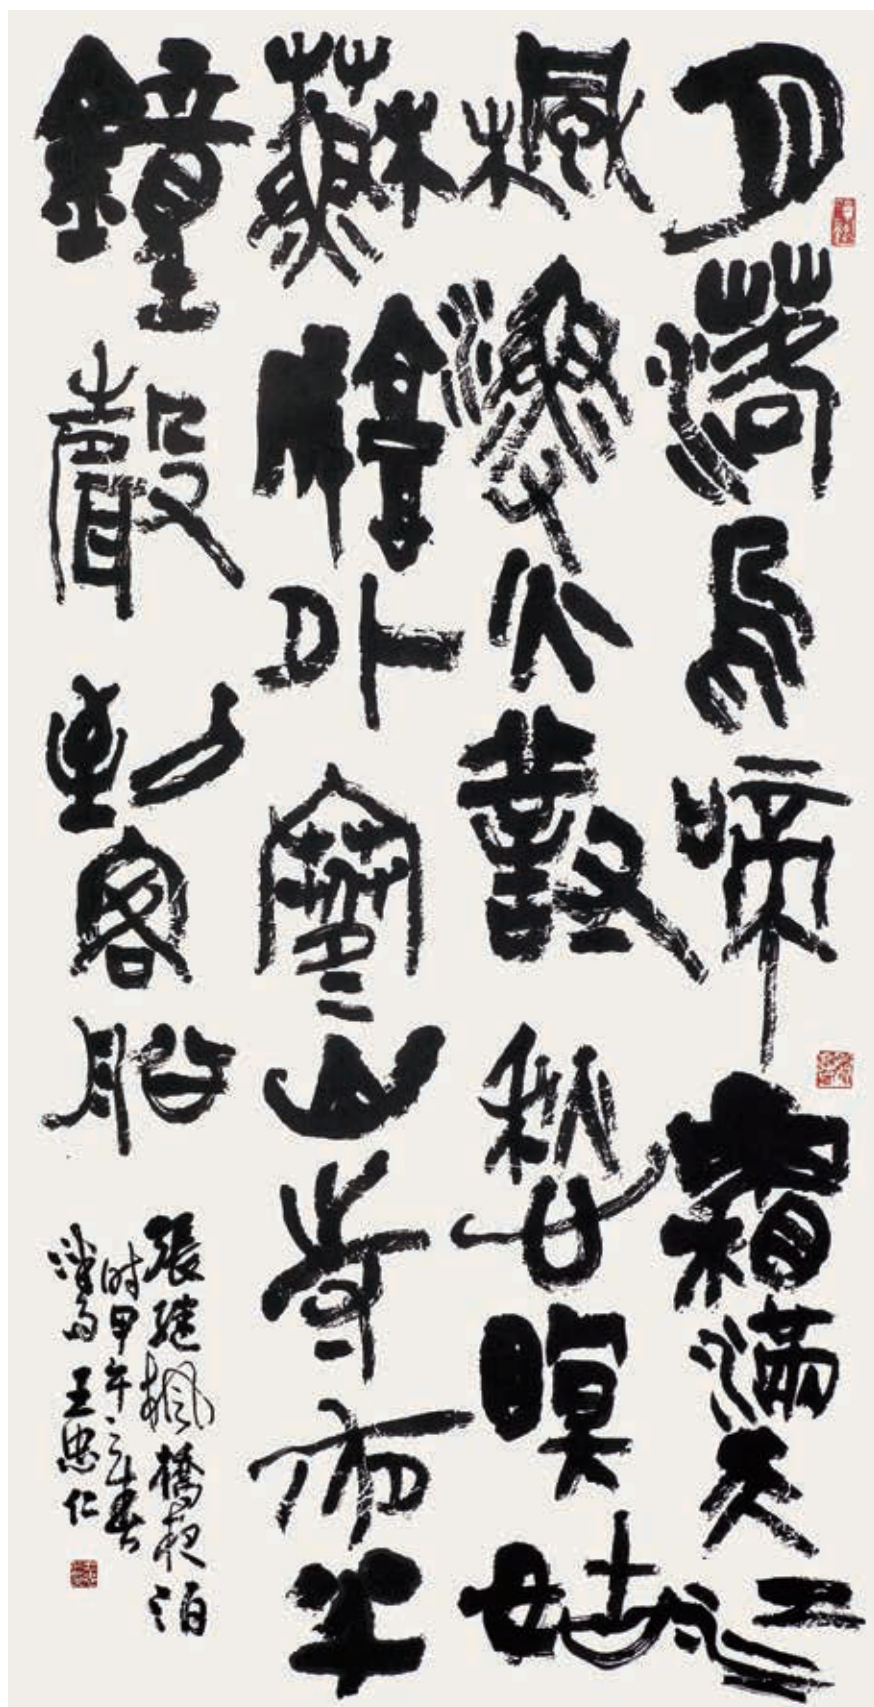 月落烏啼霜滿天江
楓漁火對愁瞑姑
蘇城外寒山寺夜半
鐘聲動客船
張繼楓橋夜泊
时甲午春
王忠仁